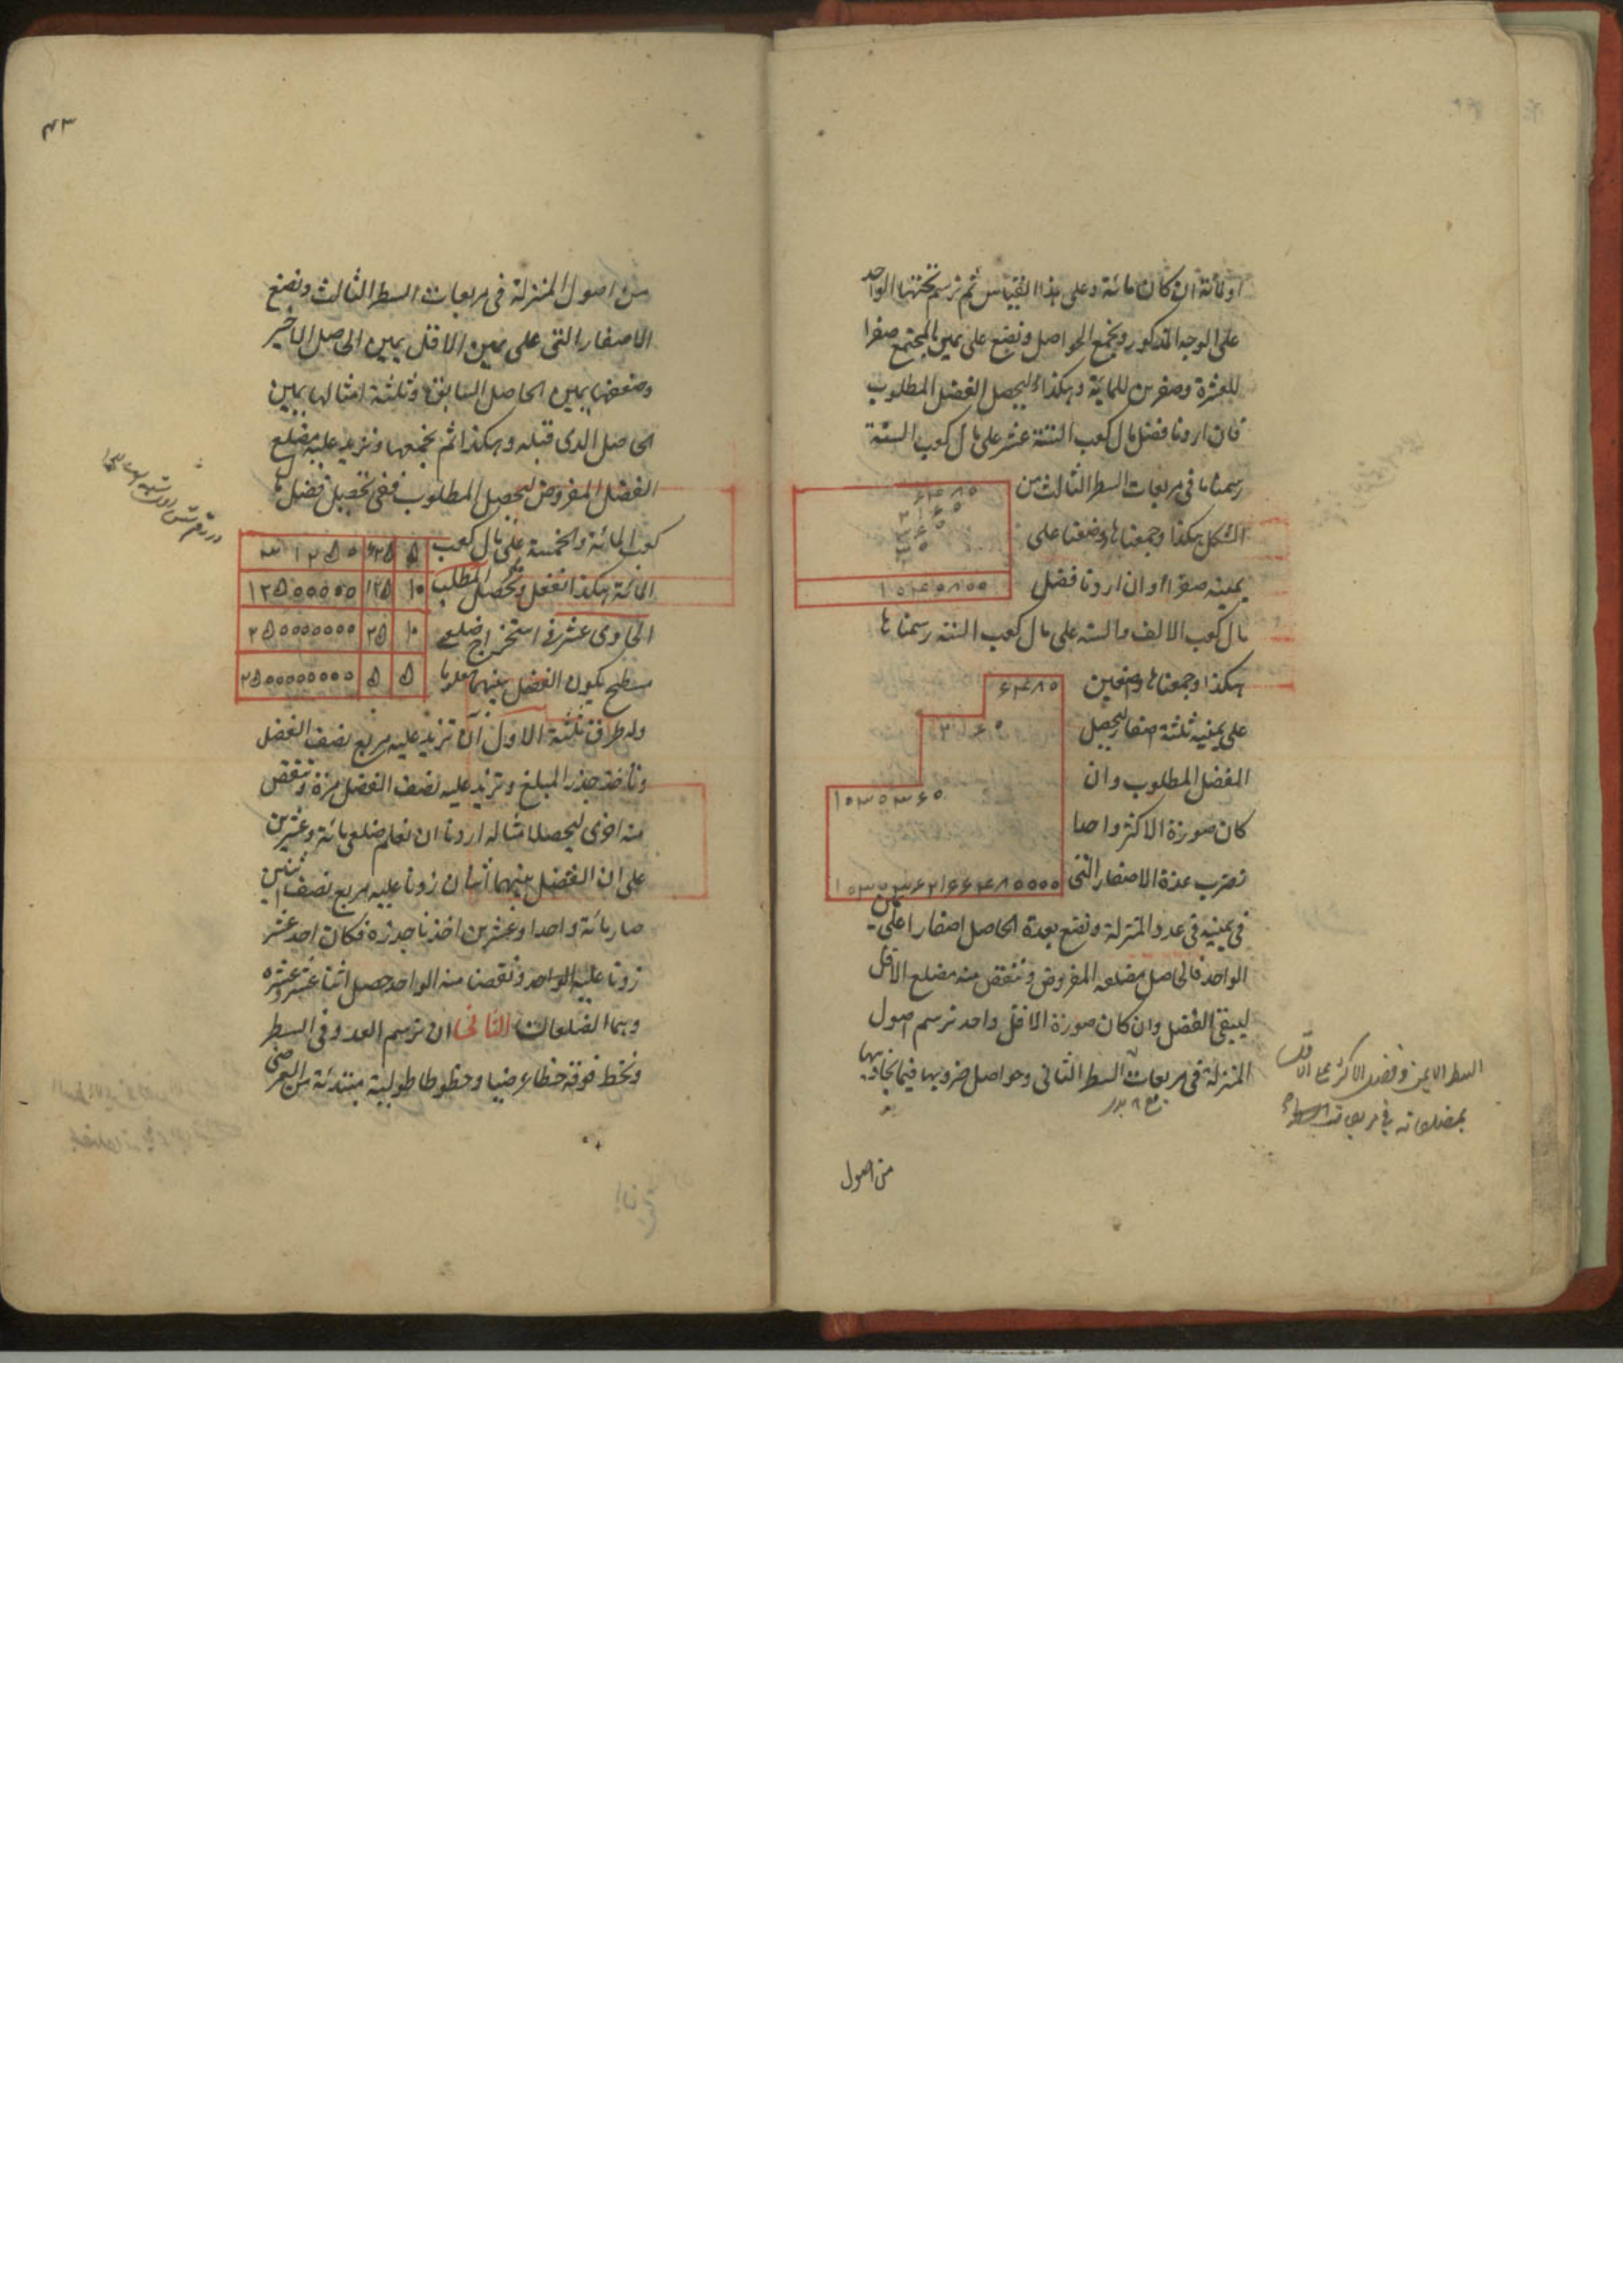 او مائة ان كان مائة وعلى هذا القياس ثم نرسم تحتها الواحد
على الوجه المذكور ونجمع الحواصل ونضع على يمين المجتمع صفرا
للعشرة وصفرين للمائة وهكذا ليحصل الفضل المطلوب
فان اردنا فضل مال كعب الستة عشر على مال كعب الستة
رسمناها فى مربعات السطر الثالث من
الشكل هكذا وجمعناها ووضعنا على
يمينه صفرا وان اردنا فضل
مال كعب الالف والستة على مال كعب الستة رسمناها
هكذا وجمعناها واضعين
على يمينه ثلثة اصفار ليحصل
الفضل المطلوب وان
كان صورة الاكثر واحدا
نضرب عدة الاصفار التى
فى يمينه فى عدد المنزلة ونضع بعدة الحاصل اصفارا على يمين
الواحد فالحاصل مضلعه المفروض وننقص منه مضلع الاقل
ليبقى الفضل وان كان صورة الاقل واحد نرسم اصول
المنزلة فى مربعات السطر الثانى وحواصل ضروبها فيما يحاذيها
۶۴۸۰
۲۱۶۰
۳۶۰
۳۰
۱۰۴۰۸۰۰
۶۴۸۰
۲۱۶۰
۱۰۳۰۳۶۰
السطر الايمن وفضل الاكثر على الاقل
بمضلعاته فى مربعات
من اصول
۴۳
من اصول المنزلة فى مربعات السطر الثالث ونضع
الاصفار التى على يمين الاقل يمين الحاصل الاخير
وضعفها يمين الحاصل السابق وثلثة امثالها يمين
الحاصل الذى قبله وهكذا ثم نجمعها ونزيد عليه مضلع
الفضل المفروض ليحصل المطلوب ففى تحصيل فضل مال
كعب المائة والخمسة على مال كعب
المائة هكذا نفعل ونحصل المطلب
الحادى عشر فى استخراج ضلعى
مسطح يكون الفضل بينهما معلوما
۵ ۶۲۵ ۳۱۲۵۰
۱۰ ۱۲۵ ۱۲۵۰۰۰۰۰
۱۰ ۲۵ ۲۵۰۰۰۰۰۰۰
۵ ۵ ۲۵۰۰۰۰۰۰۰۰۰
وله طرق ثلثة الاول ان نزيد عليه مربع نصف الفضل
وناخذ جذر المبلغ ونزيد عليه نصف الفضل مرة وننقص
منه اخرى ليحصلا مثاله اردنا ان نعلم ضلعى مائة وعشرين
على ان الفضل بينهما اثنان زدنا عليه مربع نصف اثنين
صار مائة واحدا وعشرين اخذنا جذره فكان احد عشر
زدنا عليه الواحد ونقصنا منه الواحد حصل اثنا عشر وعشرة
وهما الضلعان الثانى ان نرسم العدد فى السطر
ونخط فوقه خطا عرضيا وخطوطا طولية مبتدئة من العرضى